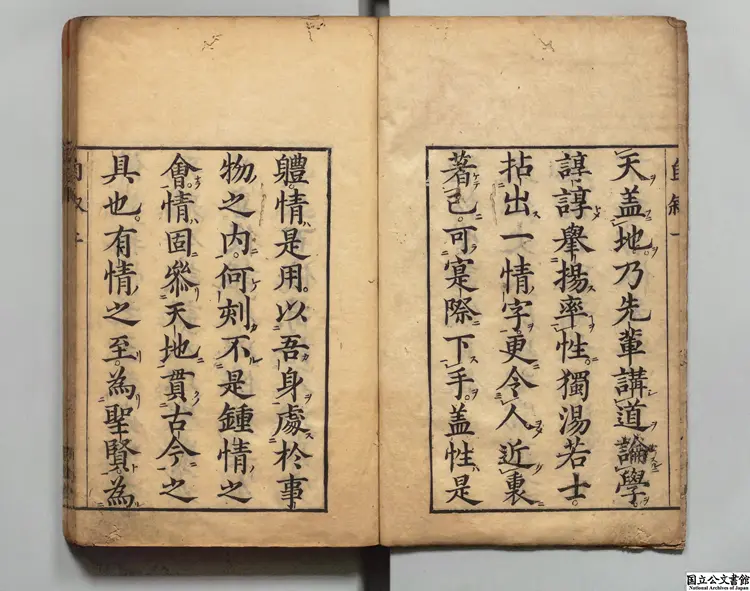 天盖地乃先輩講道論學
諄諄舉揚率性獨湯若士
拈出一情字更令人近裏
著已可寔際下手盖性是
體情是用以吾身處於事
物之内何刻不是鍾情之
會情固叅天地貫古今之
具也有情之至為聖賢為
国立公文書館
National Archives of Japan